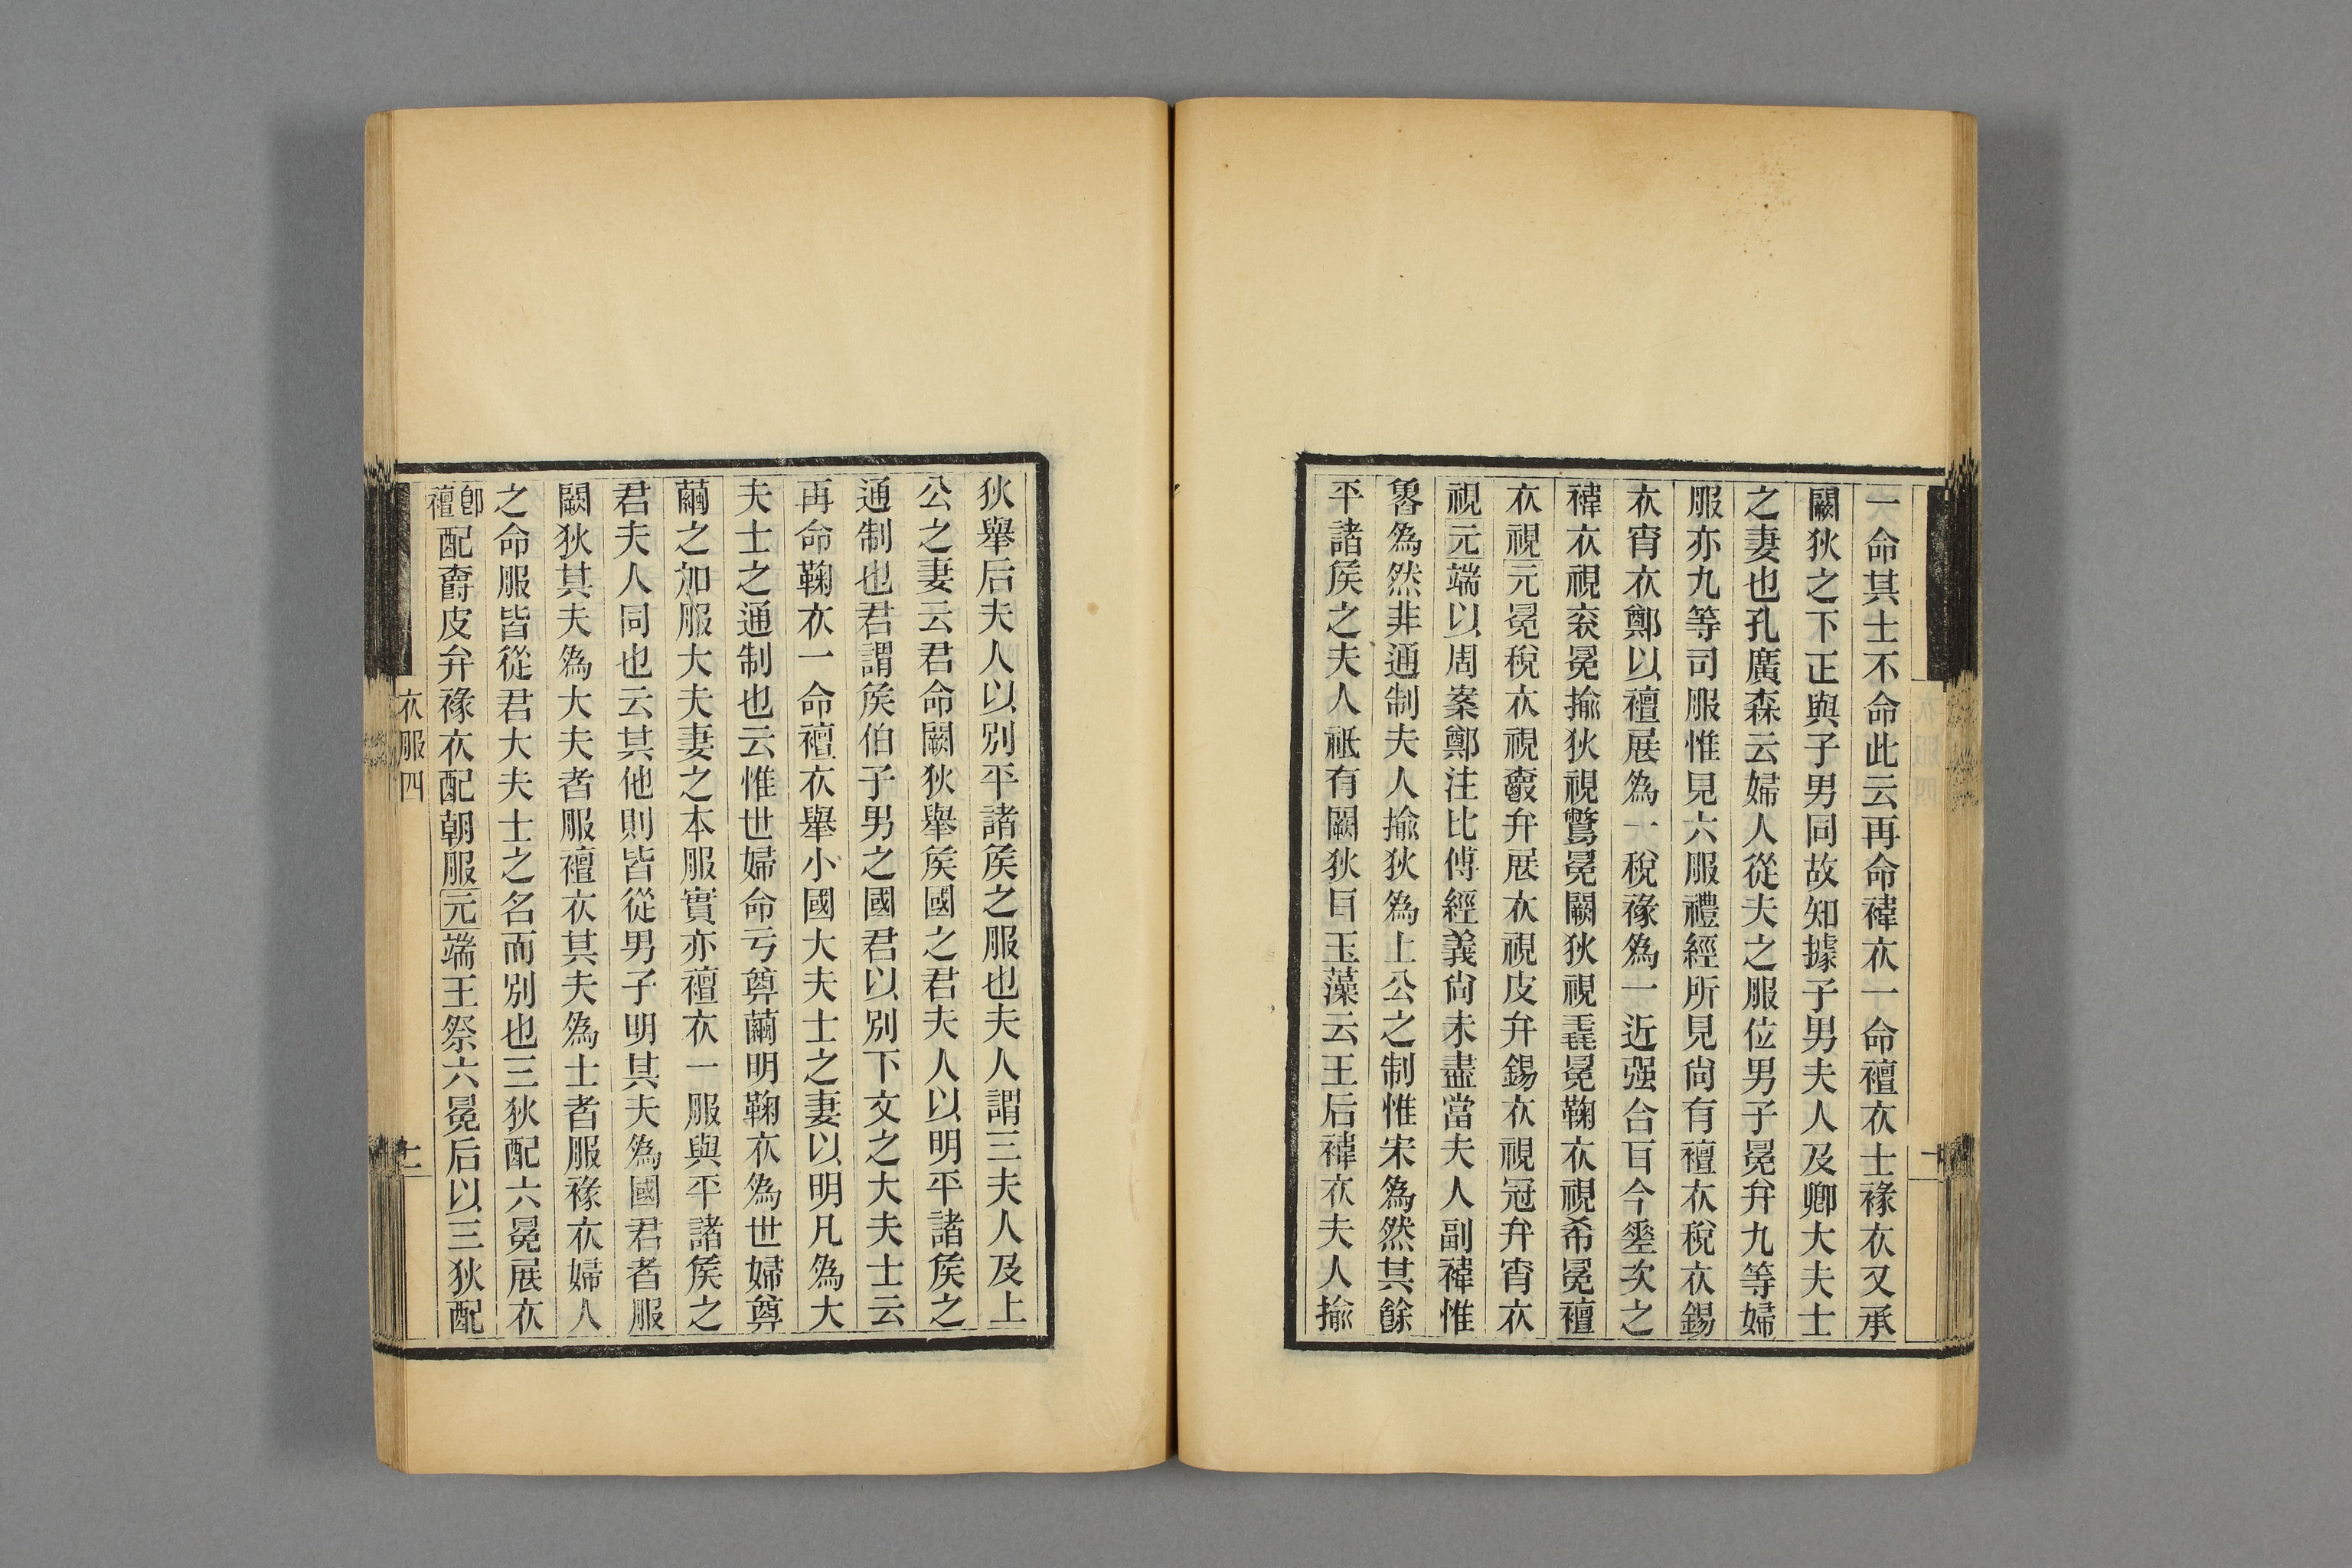 一命其士不命此云再命褘衣一命襢衣士褖衣又承
闕狄之下正與子男同故知據子男夫人及卿大夫士
之妻也孔廣森云婦人從夫之服位男子冕弁九等婦
服亦九等司服惟見六服禮經所見尙有襢衣稅衣錫
衣宵衣鄭以襢展爲一稅褖爲一近强合百今差次之
褘衣視衮冕揄狄視鷩冕闕狄視毳冕鞠衣視希冕襢
衣視元冕稅衣視爵弁展衣視皮弁錫衣視冠弁宵衣
視元端以周案鄭注比傅經義尙未盡當夫人副褘惟
魯爲然非通制夫人揄狄爲上公之制惟宋爲然其餘
平諸矦之夫人祗有闕狄目玉藻云王后褘衣夫人揄
狄舉后夫人以別平諸矦之服也夫人謂三夫人及上
公之妻云君命闕狄舉矦國之君夫人以明平諸矦之
通制也君謂矦伯子男之國君以別下文之大夫士云
再命鞠衣一命襢衣舉小國大夫士之妻以明凡爲大
夫士之通制也云惟世婦命亏奠繭明鞠衣爲世婦奠
繭之加服大夫妻之本服實亦襢衣一服與平諸矦之
君夫人同也云其他則皆從男子明其夫爲國君者服
闕狄其夫爲大夫者服襢衣其夫爲士者服褖衣婦人
之命服皆從君大夫士之名而別也三狄配六冕展衣
卽襢配爵皮弁褖衣配朝服元端王祭六冕后以三狄配
衣服四
十二